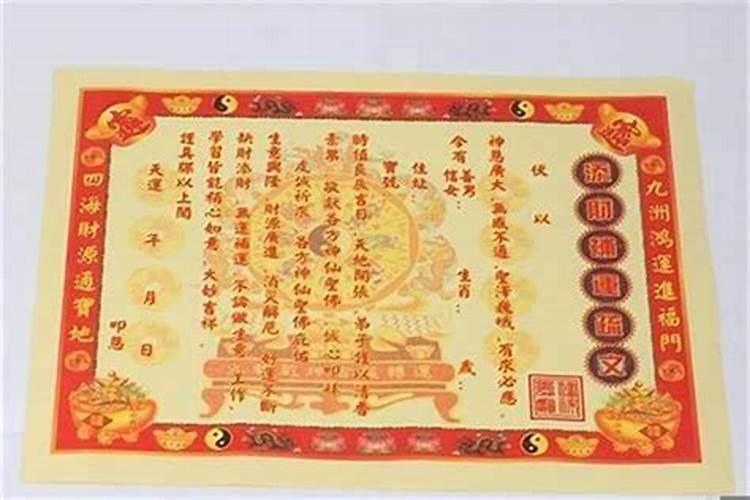 九洲鴻運進福門
添財補運疏文
伏以
神恩廣大 無感不通 聖澤巍峨 有求必應
今有善男信女: 生肖: 歲:
住址:
寶號
時值良辰吉日 天地開張 弟子謹以清香
素果 敬獻各方神仙聖佛 誠心叩拜
虔誠祈求 各方神仙聖佛庇佑
生意興隆 財源廣進 消災解厄 好運不斷
缺財添財 無運補運 不論做生意 工作、
學習皆能稱心如意 大妙吉祥
謹具疏以上聞
天運 年 月 日
叩懇
四海財源通寶地